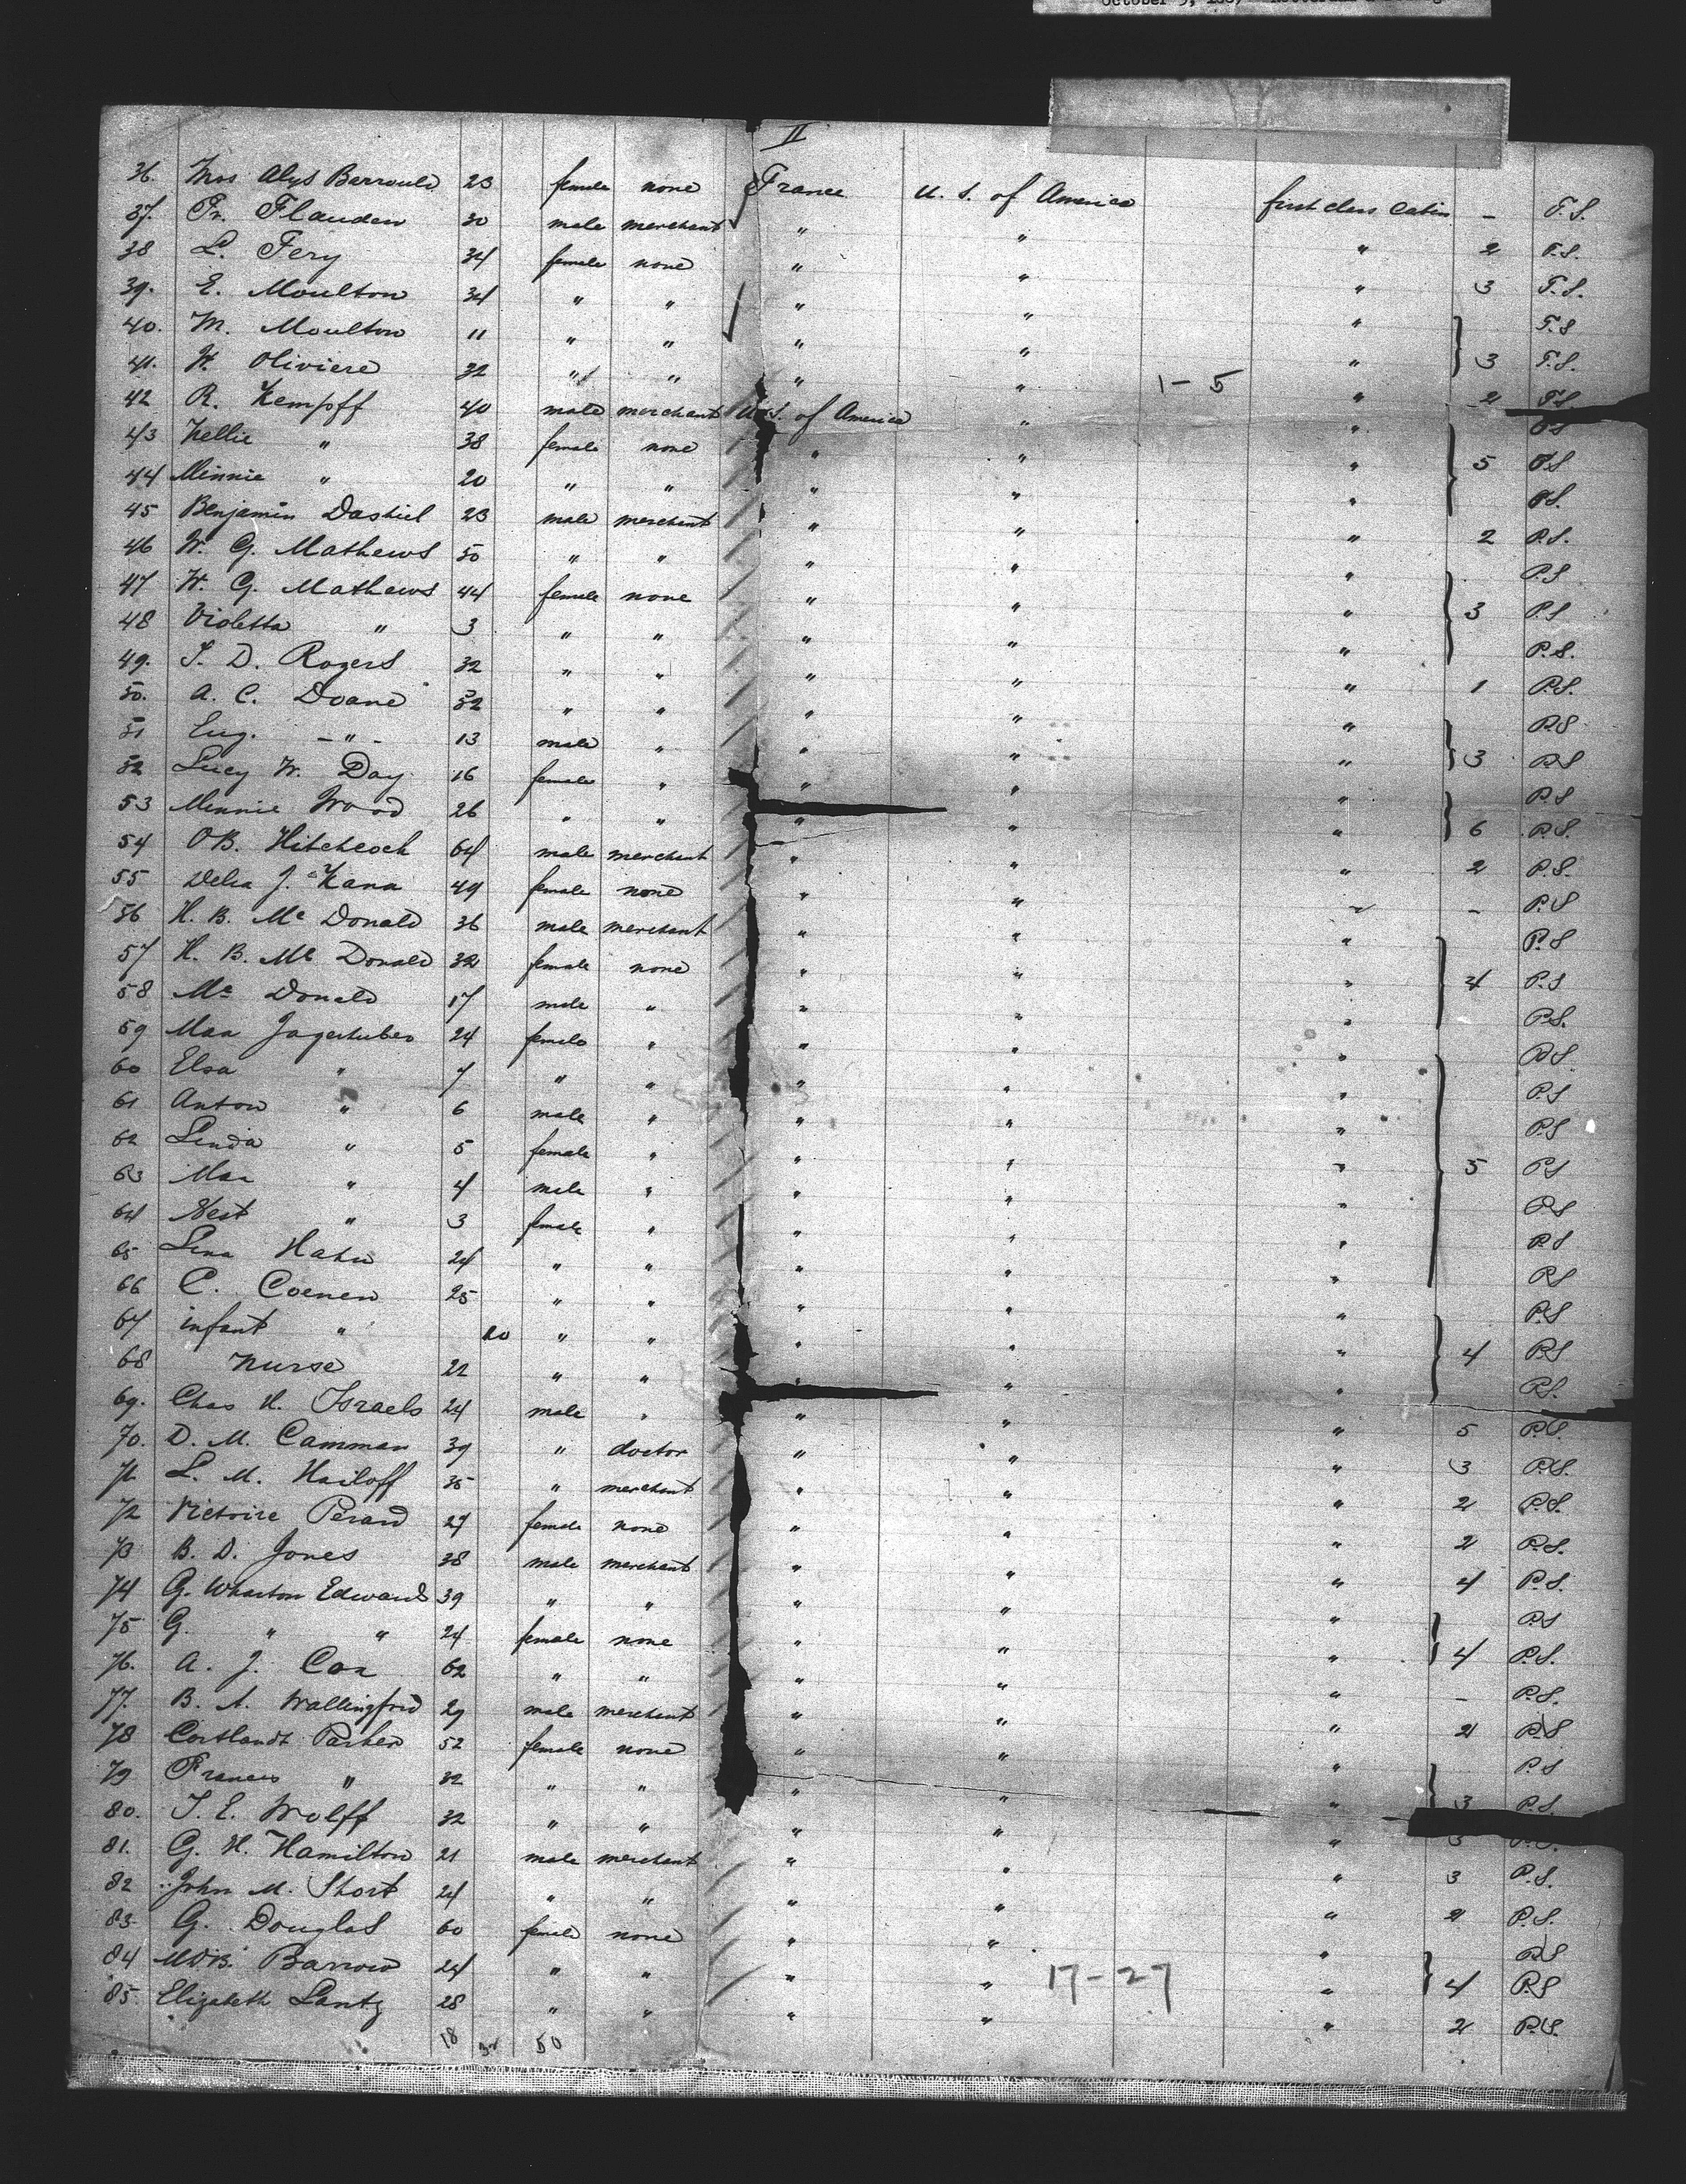 II
36. Mrs Alys Berrould 23 female none France U. S. of America first class Cabin - T.S.
37. Fr. Flauden 30 male merchant " " " 2 T.S.
38 L. Fery 34 female none " " " 3 T.S.
39. E. Moulton 34 " " " " " T.S
40. M. Moulton 11 " " " " " 3 T.S.
41. W. Oliviere 32 " " " " " 2 T.S.
42 R. Kempff 40 male merchant U.S. of America " "
43 Nellie " 38 female none " " " 5 P.S
44 Minnie " 20 " " " " " P.S.
45 Benjamin Dashiel 23 male merchant " " " 2 P.S.
46 W. G. Mathews 50 " " " " " P.S
47 W. G. Mathews 44 female none " " " 3 P.S
48 Violetta " 3 " " " " " P.S.
49. T. D. Rogers 32 " " " " " 1 P.S.
50. A. C. Doane 52 " " " " " P.S
51 Eug. - " - 13 male " " " " 3 P.S
52 Lucy W. Day 16 female " " " " P.S
53 Minnie Wood 26 " " " " " 6 P.S.
54 O B. Hitchcock 64 male merchant " " " 2 P.S.
55 Delia J. Kana 49 female none " " " - P.S
56 H. B. Mc Donald 36 male merchant " " " P.S
57 H. B. Mc Donald 32 female none " " " 4 P.S
58 Mc Donald 17 male " " " " P.S.
59 Max Jagerhuber 24 female " " " " P.S.
60 Elsa " 7 " " " " " P.S
61 Anton " 6 male " " " " P.S
62 Linda " 5 female " " " " 5 P.S
63 Max " 4 male " " " " P.S
64 " 3 female " " " " P.S
65 Lina Hahn 24 " " " " " P.S
66 C. Coenen 25 " " " " " P.S
67 infant " 10 " " " " " 4 P.S
68 Nurse 22 " " " " " P.S.
69. Chas H. Israels 24 male " " " " 5 P.S.
70. D. M. Camman 39 " doctor " " " 3 P.S.
71 L. M. Hailoff 35 " merchant " " " 2 P.S.
72 Victoire Perard 27 female none " " " 2 P.S.
73 B. D. Jones 38 male merchant " " " 4 P.S.
74 G. Wharton Edward 39 " " " " " P.S
75 G. " " 24 female none " " " 4 P.S.
76. A. J. Cox 62 " " " " " - P.S.
77. B. A. Wallingford 29 male merchant " " " 2 P.S
78 Cortlandt Parker 52 female none " " " P.S
79 Frances " 32 " " " " " 3 P.S.
80. T. E. Wolff 32 " " " " " 3 P.S.
81. G. H. Hamilton 21 male merchant " " " 3 P.S.
82 John M. Short 24 " " " " " 2 P.S.
83. G. Douglas 60 female none " " " P.S
84 Barrow 24 " " " " " 4 P.S
85. Elizabeth Lantz 28 " " " " " 2 P.S.
1-5
17-27
18 50